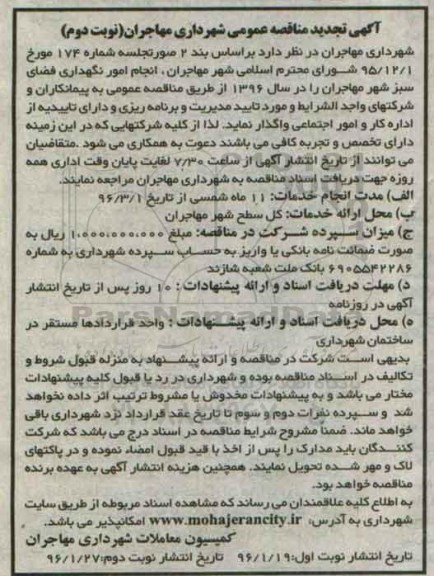 آگهی تجدید مناقصه عمومی شهرداری مهاجران(نوبت دوم)
شهرداری مهاجران در نظر دارد براساس بند ۲ صورتجلسه شماره ۱۷۴ مورخ
۹۵/۱۲/۱ شورای محترم اسلامی شهر مهاجران ، انجام امور نگهداری فضای
سبز شهر مهاجران را در سال ۱۳۹۶ از طریق مناقصه عمومی به پیمانکاران و
شرکتهای واجد الشرایط و مورد تایید مدیریت و برنامه ریزی و دارای تاییدیه از
اداره کار و امور اجتماعی واگذار نماید. لذا از کلیه شرکتهایی که در این زمینه
دارای تخصص و تجربه کافی می باشند دعوت به همکاری می شود .متقاضیان
می توانند از تاریخ انتشار آگهی از ساعت ۷/۳۰ لغایت پایان وقت اداری همه
روزه جهت دریافت اسناد مناقصه به شهرداری مهاجران مراجعه نمایند.
الف) مدت انجام خدمات: ۱۱ ماه شمسی از تاریخ ۹۶/۳/۱
ب) محل ارائه خدمات: کل سطح شهر مهاجران
ج) میزان سپرده شرکت در مناقصه: مبلغ ۱،۰۰۰،۰۰۰،۰۰۰ ریال به
صورت ضمانت نامه بانکی یا واریز به حساب سپرده شهرداری به شماره
۶۹۰۵۵۴۲۲۸۶ بانک ملت شعبه شازند
د) مهلت دریافت اسناد و ارائه پیشنهادات : ۱۰ روز پس از تاریخ انتشار
آگهی در روزنامه
ه) محل دریافت اسناد و ارائه پیشنهادات : واحد قراردادها مستقر در
ساختمان شهرداری
بدیهی است شرکت در مناقصه و ارائه پیشنهاد به منزله قبول شروط و
تکالیف در اسناد مناقصه بوده و شهرداری در رد یا قبول کلیه پیشنهادات
مختار می باشد و به پیشنهادات مخدوش یا مشروط ترتیب اثر داده نخواهد
شد و سپرده نفرات دوم و سوم تا تاریخ عقد قرارداد نزد شهرداری باقی
خواهد ماند. ضمنا مشروح شرایط مناقصه در اسناد درج می باشد که شرکت
کنندگان باید مدارک را پس از اخذ با قید قبول امضاء نموده و در پاکتهای
لاک و مهر شده تحویل نمایند. همچنین هزینه انتشار آگهی به عهده برنده
مناقصه خواهد بود.
به اطلاع کلیه علاقمندان می رساند که مشاهده اسناد مربوطه از طریق سایت
شهرداری به آدرس: www.mohajerancity.ir امکانپذیر می باشد.
کمیسیون معاملات شهرداری مهاجران
تاریخ انتشار نوبت اول:۹۶/۱/۱۹ تاریخ انتشار نوبت دوم:۹۶/۱/۲۷